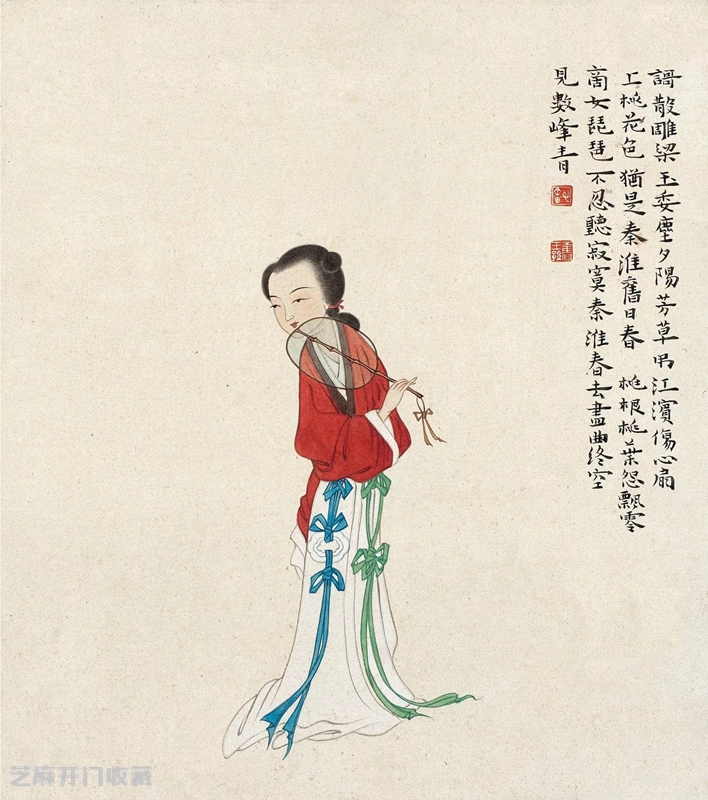 謌散雕梁玉委塵夕陽芳草弔江濱傷心扇
上桃花色猶是秦淮舊日春 桃根桃葉怨飄零
商女琵琶不忍聽寂寞秦淮春去盡曲終空
見數峰青
芝麻开门收藏